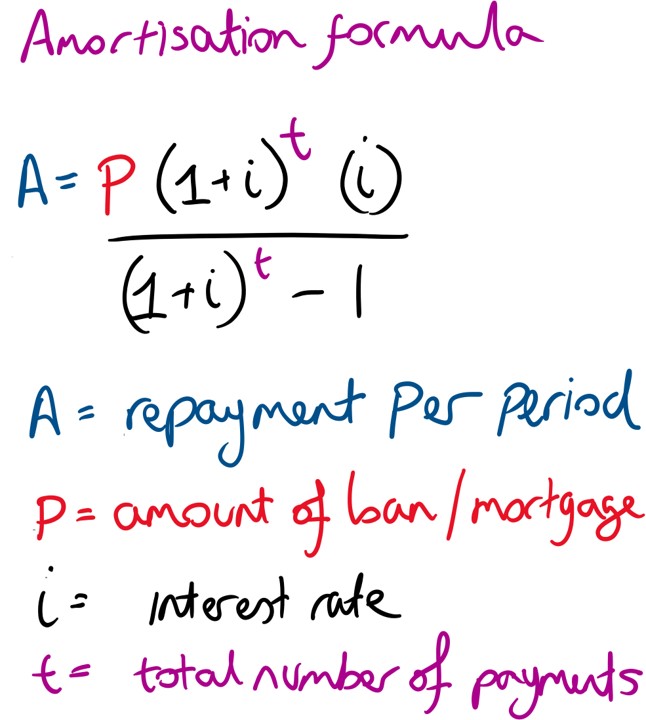 Amortisation formula
A = P (1+i)^t (i)
(1+i)^t - 1
A = repayment per period
P = amount of loan/mortgage
i = interest rate
t = total number of payments